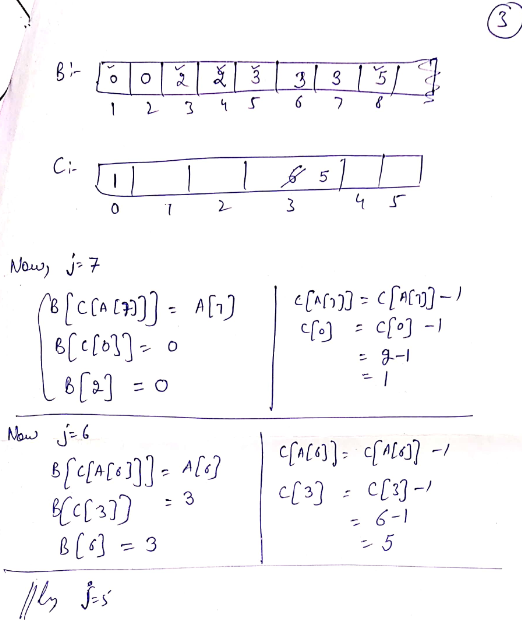 3
B:- 0 0 2 2 3 3 3 5
1 2 3 4 5 6 7 8
C:- 1 6 5
0 1 2 3 4 5
Now, j=7
B[C[A[7]]] = A[7]
B[C[0]] = 0
B[2] = 0
C[A[7]] = C[A[7]] -1
C[0] = C[0] -1
= 2-1
= 1
Now j=6
B[C[A[6]]] = A[6]
B[C[3]] = 3
B[6] = 3
C[A[6]] = C[A[6]] -1
C[3] = C[3] -1
= 6-1
= 5
||ly j=5